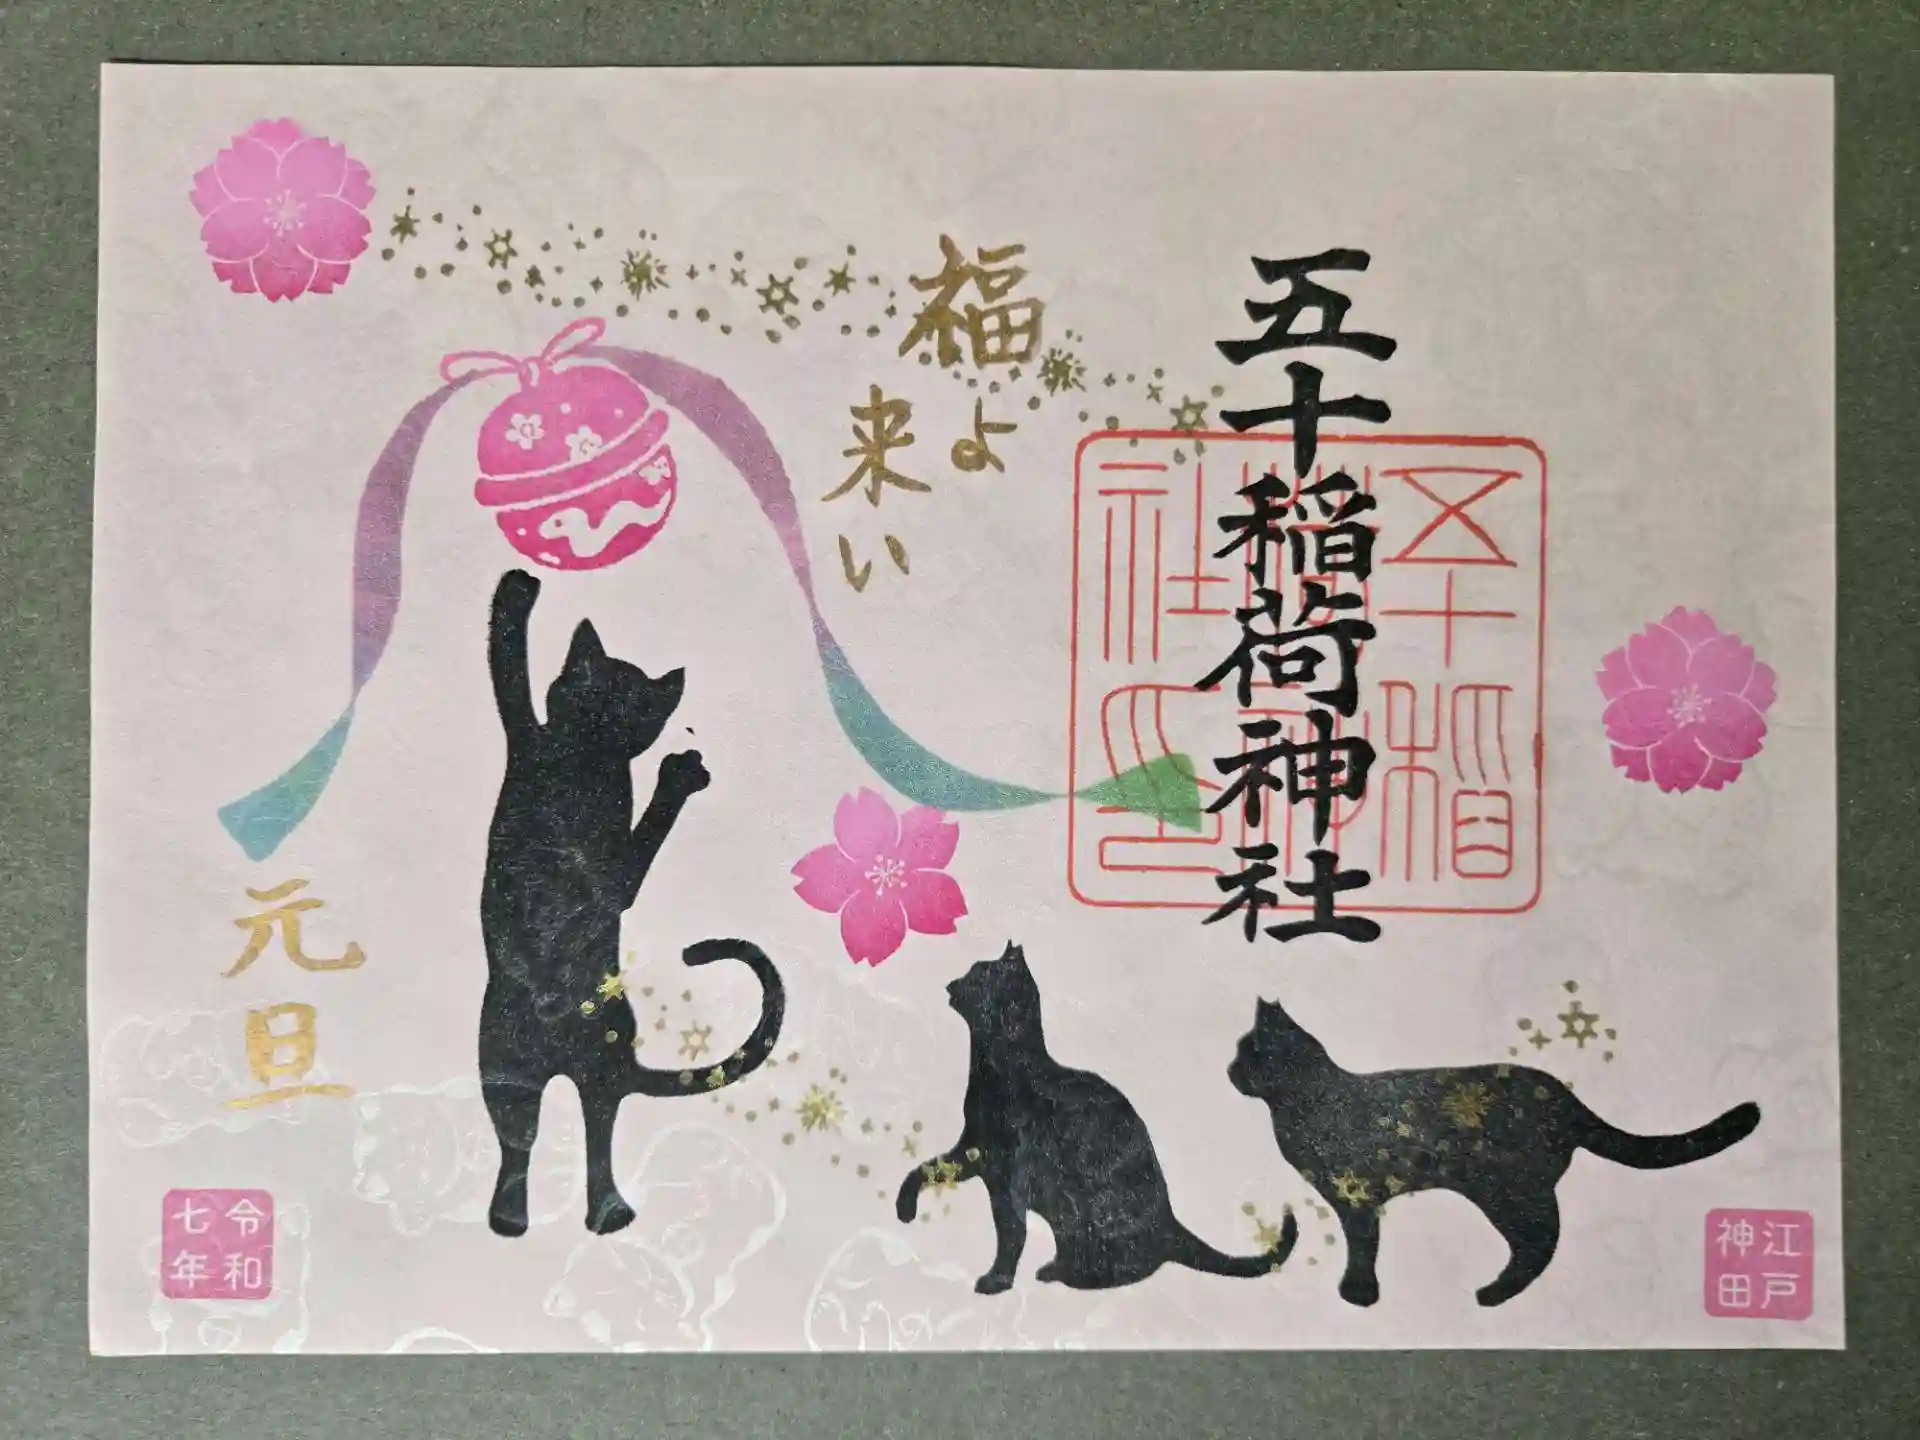 五十稲荷神社
五十稲
荷神
社印
福よ
来い
元旦
江戸
神田
令和
七年